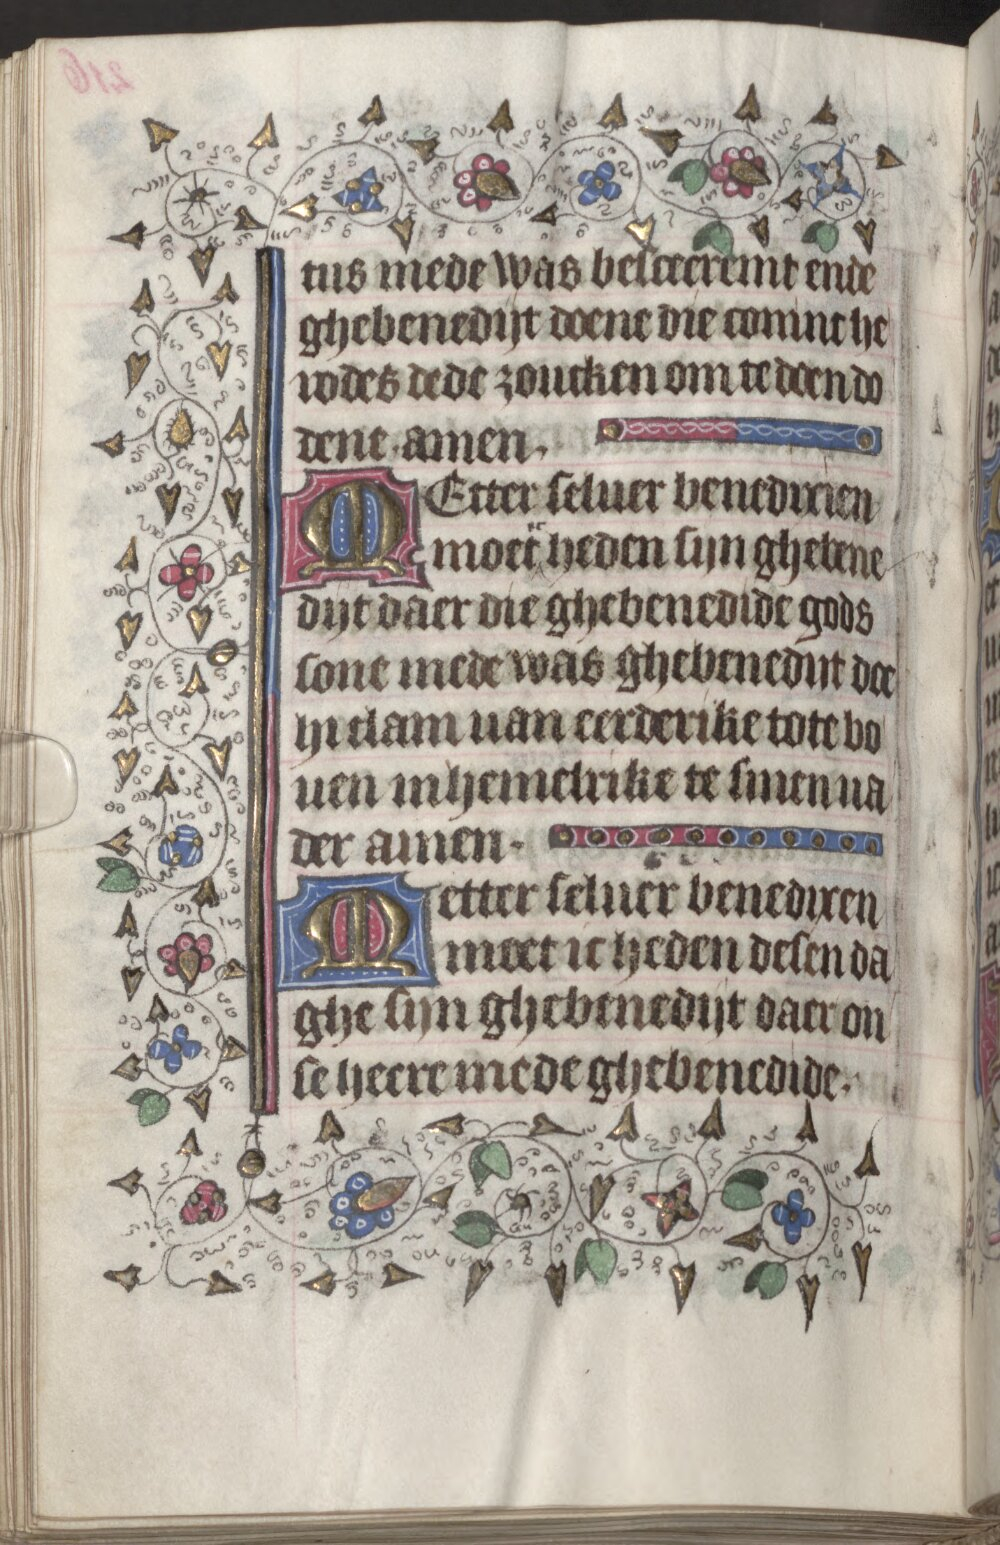 216
tus mede was bescecremt ende
ghebenedijt doene die comnc he
rodes dede zoucken om te doen do
dene amen.
MEtter seluer benedixcien
moet ic heden sijn ghebene
dijt daer die ghebenedide gods
sone mede was ghebenedijt doe
hi clam uan eerderike tote bo
uen in hemelrike te sinen ua
der amen.
Metter seluer benedixen
moet ic heden desen da
ghe sijn ghebenedijt daer on
se heere mede ghebenedide.